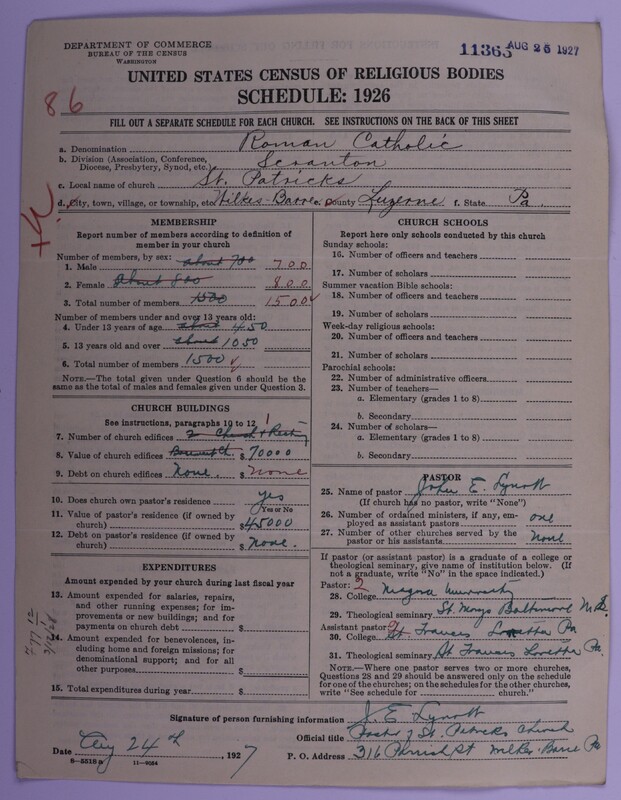 DEPARTMENT OF COMMERCE
BUREAU OF THE CENSUS
WASHINGTON
11363 AUG 26 1927
UNITED STATES CENSUS OF RELIGIOUS BODIES
SCHEDULE: 1926
86
FILL OUT A SEPARATE SCHEDULE FOR EACH CHURCH. SEE INSTRUCTIONS ON THE BACK OF THIS SHEET
a. Denomination Roman Catholic
b. Division (Association, Conference, Diocese, Presbytery, Synod, etc.) Scranton
c. Local name of church St. Patricks
d. City, town, village, or township, etc. Wilkes-Barre e. County Luzerne f. State Pa
MEMBERSHIP
Report number of members according to definition of
member in your church
Number of members, by sex:
1. Male about 700 700
2. Female about 800 800
3. Total number of members 1500 1500
Number of members under and over 13 years old:
4. Under 13 years of age about 450
5. 13 years old and over about 1050
6. Total number of members 1500
NOTE.—The total given under Question 6 should be the
same as the total of males and females given under Question 3.
CHURCH BUILDINGS
See instructions, paragraphs 10 to 12
7. Number of church edifices 2 Church & Rectory 1
8. Value of church edifices $ 70000
9. Debt on church edifices None. $ none
10. Does church own pastor's residence yes
Yes or No
11. Value of pastor's residence (if owned by
church) $ 45000
12. Debt on pastor's residence (if owned by
church) $ none.
EXPENDITURES
Amount expended by your church during last fiscal year
13. Amount expended for salaries, repairs,
and other running expenses; for im-
provements or new buildings; and for
payments on church debt $
14. Amount expended for benevolences, in-
cluding home and foreign missions; for
denominational support; and for all
other purposes $
15. Total expenditures during year $
CHURCH SCHOOLS
Report here only schools conducted by this church
Sunday schools:
16. Number of officers and teachers
17. Number of scholars
Summer vacation Bible schools:
18. Number of officers and teachers
19. Number of scholars
Week-day religious schools:
20. Number of officers and teachers
21. Number of scholars
Parochial schools:
22. Number of administrative officers
23. Number of teachers—
a. Elementary (grades 1 to 8)
b. Secondary
24. Number of scholars—
a. Elementary (grades 1 to 8)
b. Secondary
PASTOR
25. Name of pastor John E. Lynott
(If church has no pastor, write "None")
26. Number of ordained ministers, if any, em-
ployed as assistant pastors one
27. Number of other churches served by the
pastor or his assistants none
If pastor (or assistant pastor) is a graduate of a college or
theological seminary, give name of institution below. (If
not a graduate, write "No" in the space indicated.)
Pastor: 2
28. College Niagara University
29. Theological seminary St Marys Baltimore Md.
Assistant pastor:
30. College St Francis Loretta Pa
31. Theological seminary St Francis Loretta Pa.
NOTE.—Where one pastor serves two or more churches,
Questions 28 and 29 should be answered only on the schedule
for one of the churches; on the schedules for the other churches,
write "See schedule for church."
Signature of person furnishing information J. E. Lynott
Official title Pastor of St. Patricks Church
Date Aug 24th, 1927 P. O. Address 316 Parrish St Wilkes-Barre Pa
8—5518a 11—9034